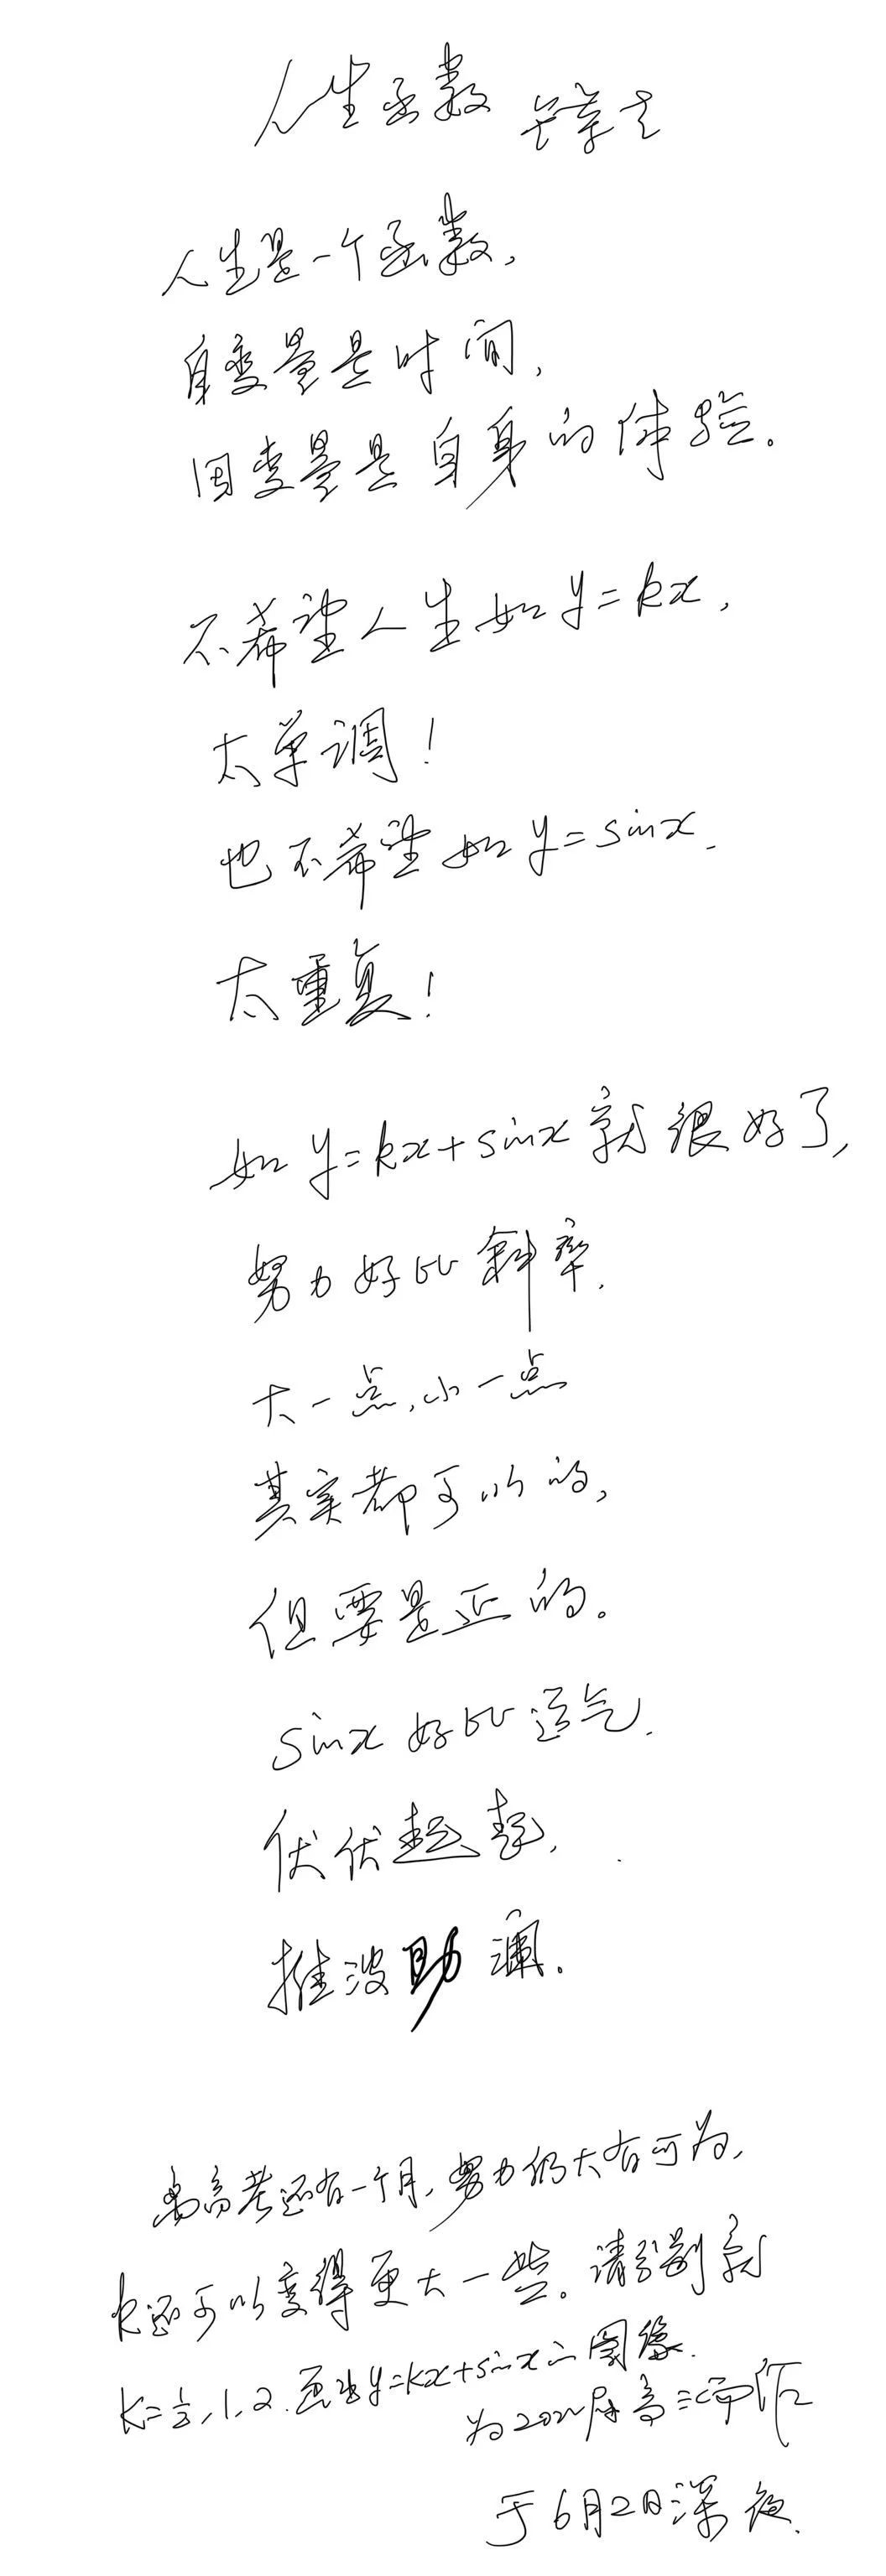 人生函数
人生是一个函数,
自变量是时间,
因变量是自身的体验。
不希望人生如y=kx,
太单调!
也不希望如y=sinx.
太重复!
如y=kx+sinx就很好了,
努力好比斜率.
大一点,小一点
其实都可以的,
但要是正的。
sinx好比运气.
伏伏起起,
推波助澜.
离高考还有一个月,努力仍大有可为,
k还可以变得更大一些。请分别就
k=1/2,1,2.画出y=kx+sinx的图像.
为2022届高三师作
于6月2日深夜.